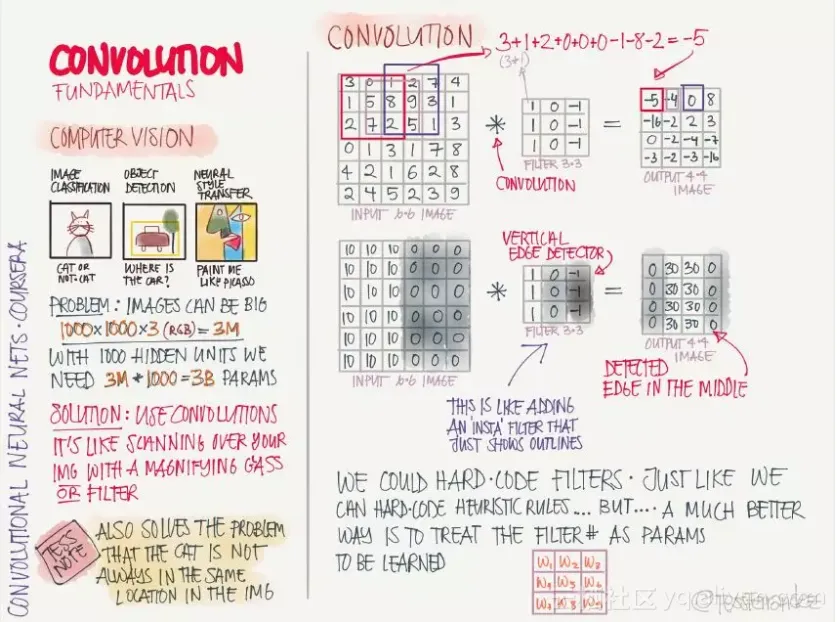 CONVOLUTIONAL NEURAL NETS · COURSERA
CONVOLUTION
FUNDAMENTALS
COMPUTER VISION
IMAGE CLASSIFICATION
OBJECT DETECTION
NEURAL STYLE TRANSFER
CAT OR NOT-CAT
WHERE IS THE CAR?
PAINT ME LIKE PICASSO
PROBLEM: IMAGES CAN BE BIG
1000×1000×3 (RGB) = 3M
WITH 1000 HIDDEN UNITS WE
NEED 3M*1000=3B PARAMS
SOLUTION: USE CONVOLUTIONS
IT'S LIKE SCANNING OVER YOUR
IMG WITH A MAGNIFYING GASS
OR FILTER
TESS NOTE
ALSO SOLVES THE PROBLEM
THAT THE CAT IS NOT
ALWAYS IN THE SAME
LOCATION IN THE IMG
CONVOLUTION
3+1+2+0+0+0-1-8-2=-5
(3*1)
3 0 1 2 7 4
1 5 8 9 3 1
2 7 2 5 1 3
0 1 3 1 7 8
4 2 1 6 2 8
2 4 5 2 3 9
INPUT 6·6 IMAGE
*
1 0 -1
1 0 -1
1 0 -1
FILTER 3×3
CONVOLUTION
=
-5 -4 0 8
-10 -2 2 3
0 -2 -4 -7
-3 -2 -3 -16
OUTPUT 4·4
IMAGE
10 10 10 0 0 0
10 10 10 0 0 0
10 10 10 0 0 0
10 10 10 0 0 0
10 10 10 0 0 0
10 10 10 0 0 0
INPUT 6·6 IMAGE
*
VERTICAL
EDGE DETECTOR
1 0 -1
1 0 -1
1 0 -1
FILTER 3×3
=
0 30 30 0
0 30 30 0
0 30 30 0
0 30 30 0
OUTPUT 4·4
IMAGE
THIS IS LIKE ADDING
AN 'INSTA' FILTER THAT
JUST SHOWS OUTLINES
DETECTED
EDGE IN THE MIDDLE
WE COULD HARD·CODE FILTERS · JUST LIKE WE
CAN HARD·CODE HEURISTIC RULES.... BUT.... A MUCH BETTER
WAY IS TO TREAT THE FILTER# AS PARAMS
TO BE LEARNED
W1 W2 W3
W4 W5 W6